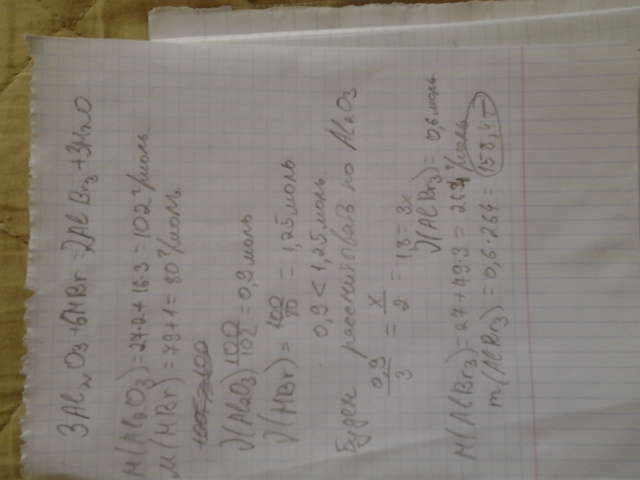 3Al₂O₃+6HBr=2AlBr₃+3H₂O
M(Al₂O₃)=27·2+16·3=102 г/моль
M(HBr)=79+1=80 г/моль
ν(Al₂O₃)=100/102=0,9 моль
ν(HBr)=100/80=1,25 моль
0,9<1,25 моль
Будем рассчитовать по Al₂O₃
0,9/3=x/2=1,8=3x
ν(AlBr₃)=0,6 моль
M(AlBr₃)=27+79·3=264 г/моль
m(AlBr₃)=0,6·264=158,4 г